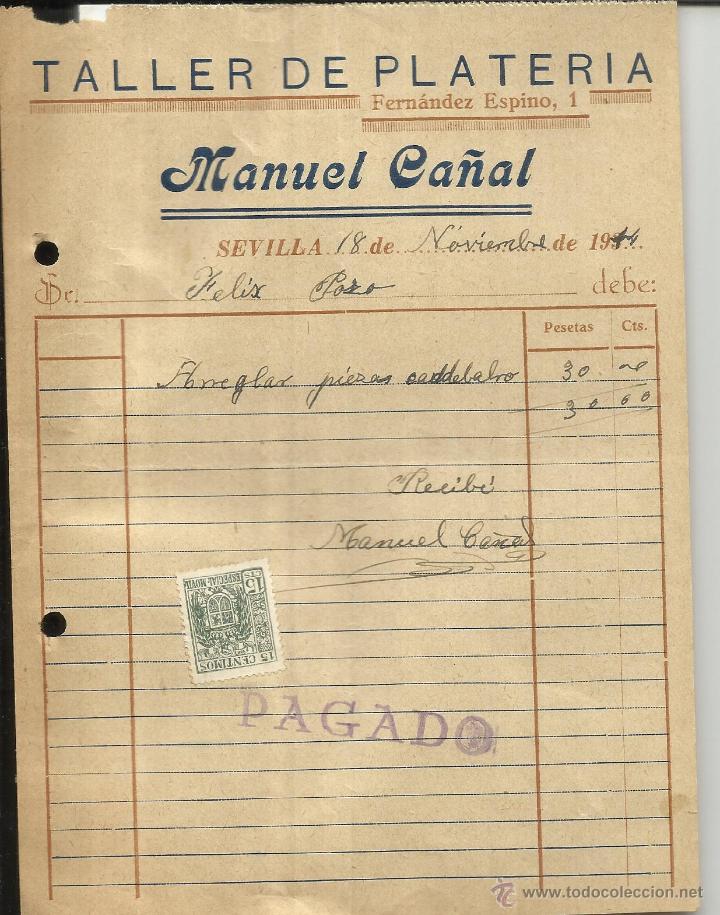 TALLER DE PLATERIA
Fernández Espino, 1
Manuel Cañal
SEVILLA 18 de Noviembre de 1944
Sr. Felix Pozo debe:
Pesetas Cts.
Arreglar piezas 30 00
30 00
Recibi
Manuel Cañal
ESPECIAL MOVIL
15 CTS
15 CENTIMOS
PAGADO
www.todocoleccion.net